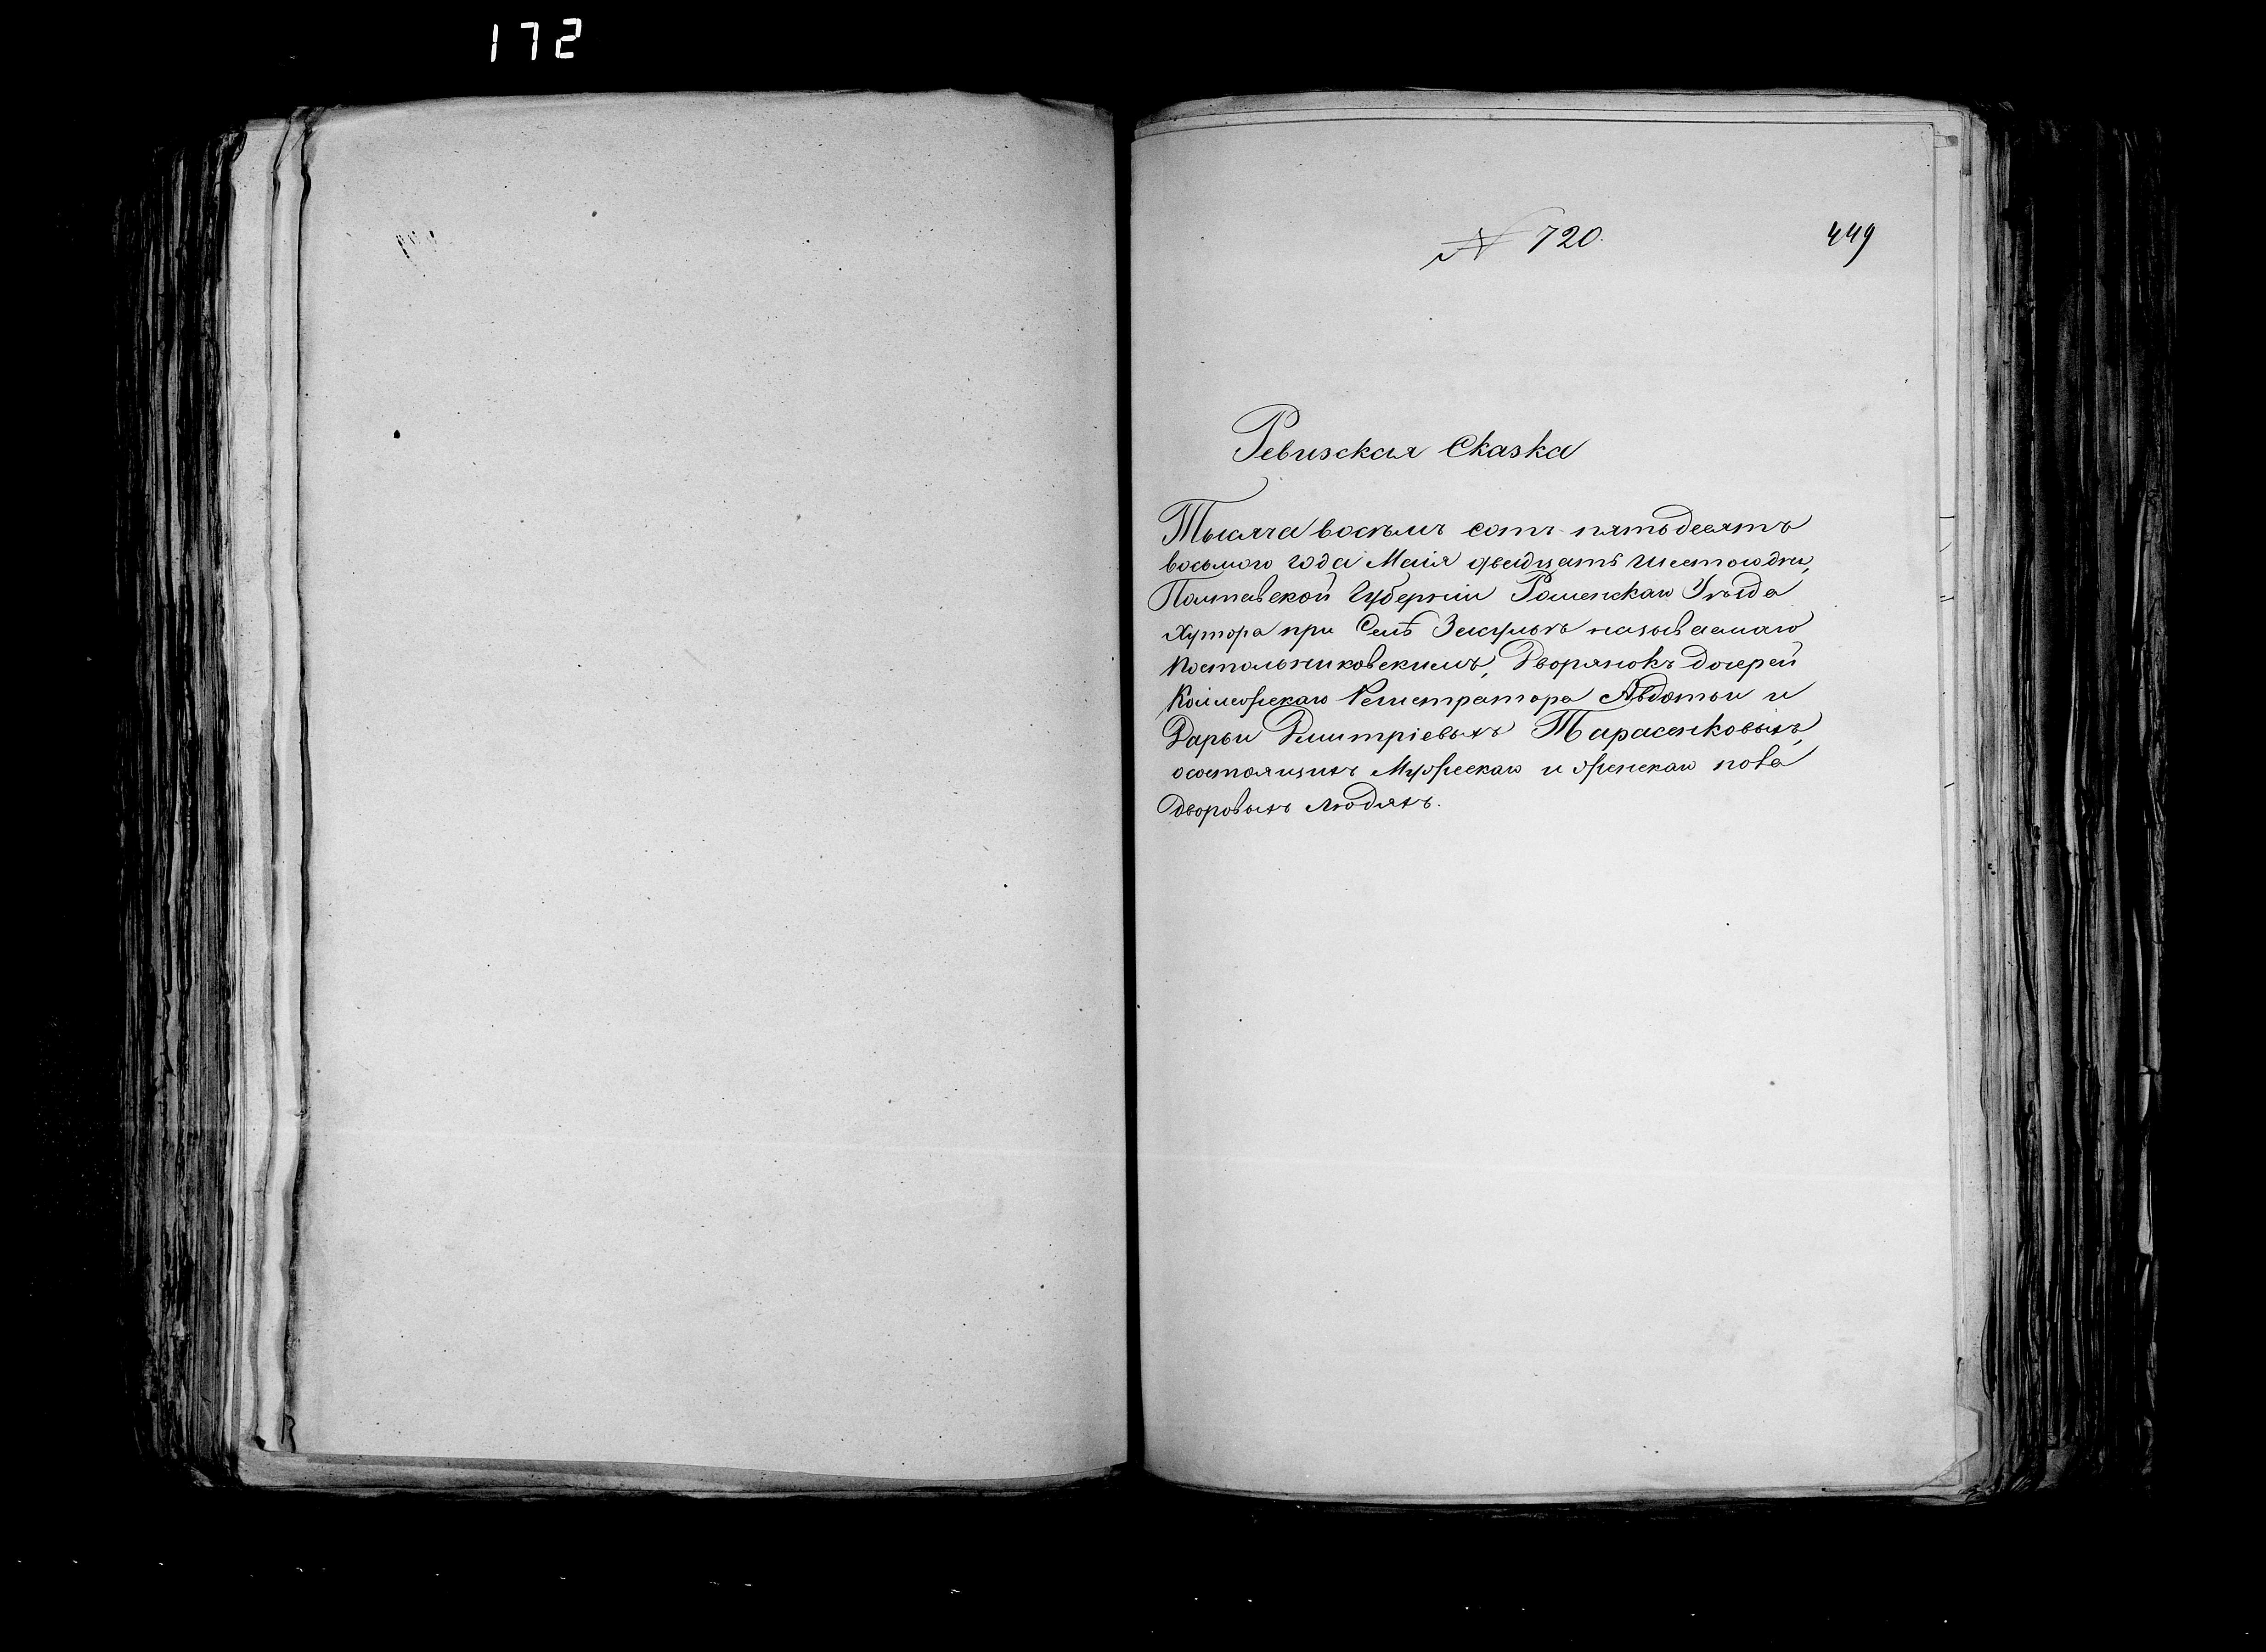 172
№ 720.
449
Ревизская Сказка
Тысяча восемь сотъ пятьдесятъ
восьмого года Маія двадцать шестого дня,
Полтавской Губерніи Роменскаго Уѣзда
Хутора при Селѣ называемаго
Постольниковскимъ, Дворянокъ дочерей
Коллежскаго Регистратора Авдотьи и
Дарьи Дмитріевыхъ Тарасенковыхъ,
о состоящихъ Мужескаго и женскаго пола
дворовыхъ людяхъ.